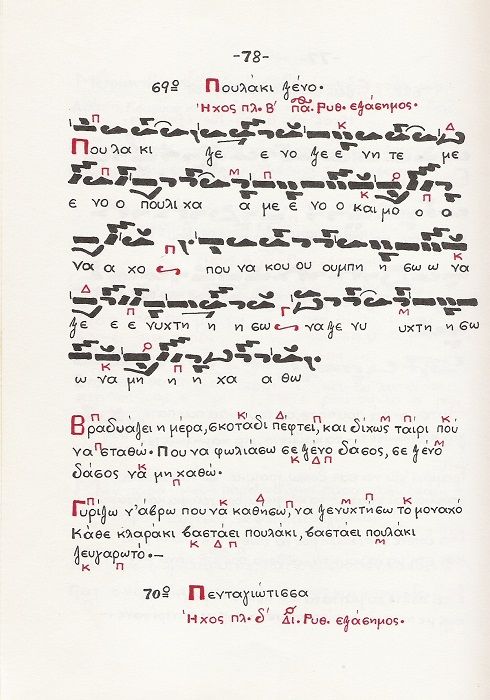 -78-
69º Πουλάκι ξένο.
Ήχος πλ. Β' πα. Ρυθ. εξάσημος.
Π Κ Δ
Που λα κι ξε ε νο ξε ε νη τε με
Π Μ Π Κ Π
ε νο ο που λι χα α με ε νο ο και μο ο ο
Π Κ
να α χο που να κου ου ουμπη η σω ω να
Δ Π Γ Μ
ξε ε ε νυχτη η η σω να ξε νυ υχτη ησω
Κ Π
ω να μη η η χα α θω
Π Κ Δ Π Μ Π Κ
Βραδυάζει η μέρα, σκοτάδι πέφτει, και δίχως ταίρι πού
Π Μ
να σταθώ. Που να φωλιάσω σε ξένο δάσος, σε ξένο
Κ Δ Π
δάσος νά μη χαθώ.
Κ Π
Κ Δ Π Μ Π Κ
Γυρίζω ν' άβρω που να καθησω, να ξενυχτήσω το μοναχό
Κάθε κλαράκι βαστάει πουλάκι, βαστάει πουλάκι
Κ Δ Π Μ
ζευγαρωτό.—
Κ Π
70º Πενταγιώτισσα
Ήχος πλ. δ' Δι. Ρυθ. εξάσημος.